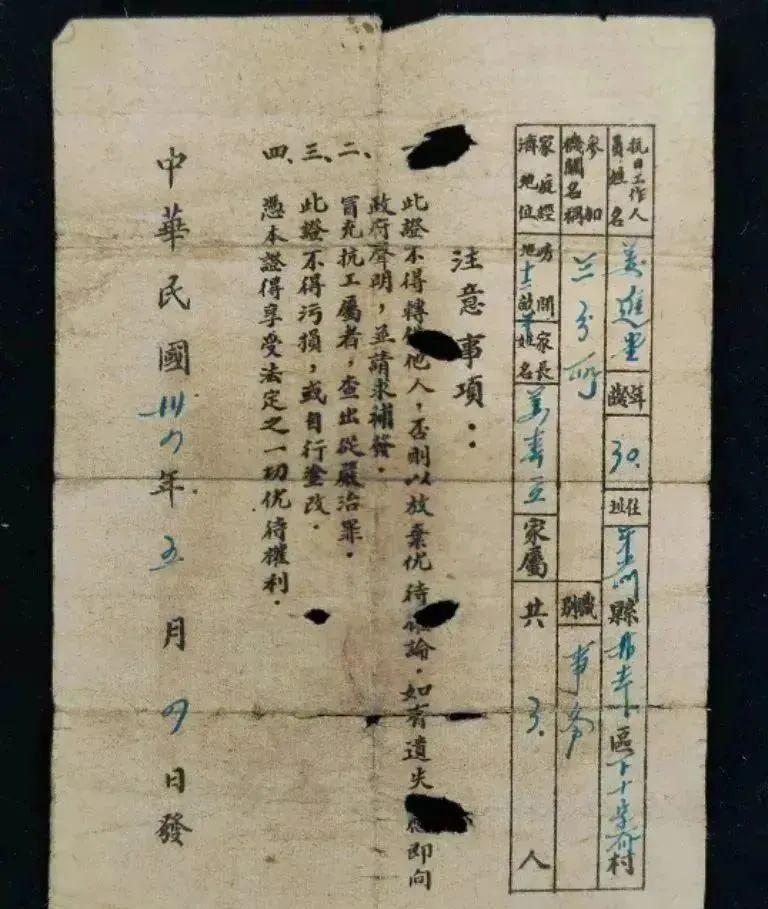 抗日工作人員姓名 姜進 年歲 30. 住址 縣 區下十字 村
參加機關名稱 職別 事务
家庭經濟地位 房 間 地十二畝 家長姓名 姜 家屬共 3. 人
注意事項：
一、此證不得轉 他人，否則以放棄优待 論．如有遺失 即向
政府聲明，並請求補發．
二、冒充抗工屬者，查出從嚴治罪．
三、此證不得污損，或自行塗改．
四、憑本證得享受法定之一切优待權利．
中華民國卅四年五月四日發